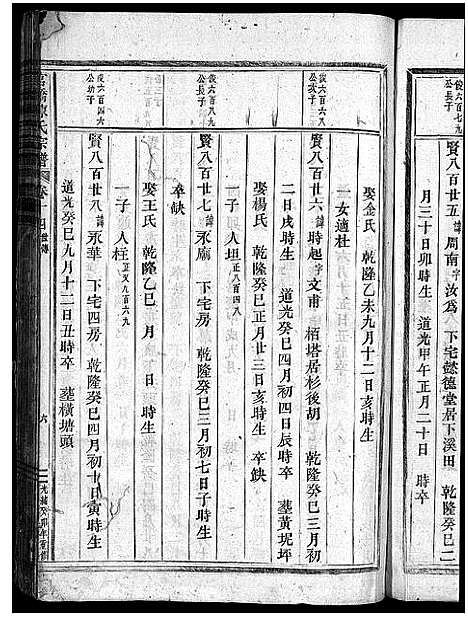 俊六百七九
公長子
賢八百廿五 諱 周南 字 汝爲 下宅懿德堂居下溪田 乾隆癸巳二
月三十日卯時生 道光甲午正月二十日 時卒
娶金氏 乾隆乙未九月十二日亥時生
一女適杜
俊六百八八
公次子
賢八百廿六 諱 時起 字 文甫 栢塔居杉後胡 乾隆癸巳三月初
二日戌時生 道光癸巳四月初四日辰時卒 葬黃坭坪
娶楊氏 乾隆癸巳正月廿三日亥時生 卒缺
一子 人垣 正八百四八
俊六百七九
公長子
賢八百廿七 諱 永廟 下宅四房 乾隆癸巳三月初七日子時生
卒缺
娶王氏 乾隆乙巳 月 日 時生
一子 人柱 正又八百六九
俊六百四九
公幼子
賢八百廿八 諱 永華 下宅四房 乾隆癸巳四月初十日寅時生
道光癸巳九月十二日丑時卒 葬橫塘頭
陳氏宗譜 卷十四 世傳 六 光緒癸卯年重修